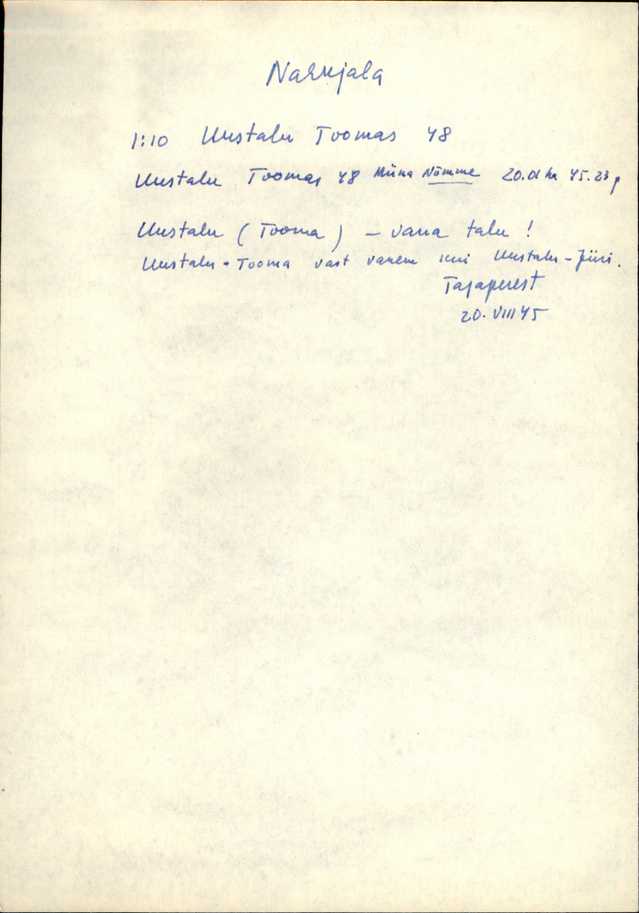 Nasujala
1:10 Uustalu Toomas 48
Uustalu Toomas 48 Miina Nõmme 20.01 ha 45.23 p
Uustalu (Tooma) – vana talu!
Uustalu-Tooma vast vanem kui Uustalu-Jüri.
Tagaperest
20. VIII 45